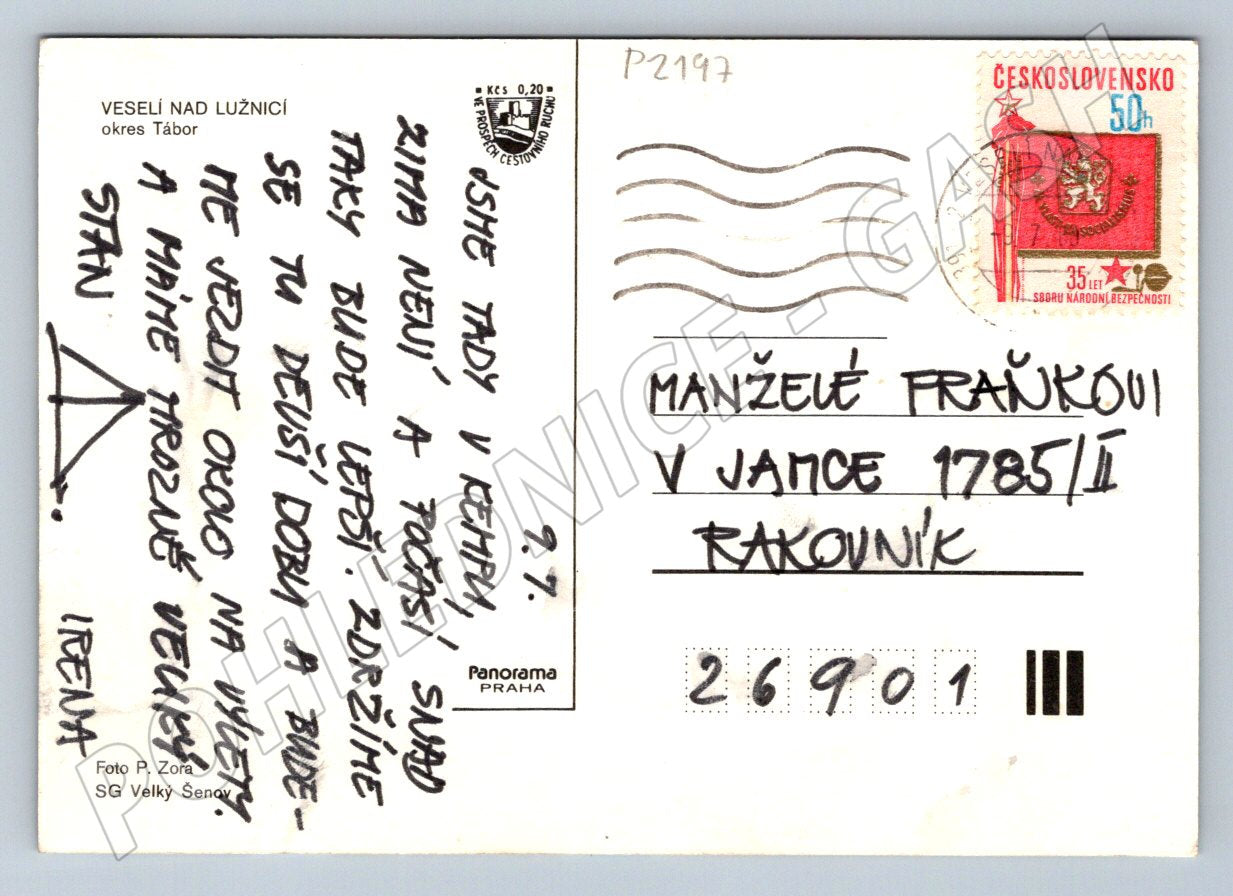 VESELÍ NAD LUŽNICÍ
okres Tábor
KČS 0,20
VE PROSPĚCH CESTOVNÍHO RUCHU
9.7.
JSME TADY V KEMPU,
ZIMA NENÍ A POČASÍ SNAD
TAKY BUDE LEPŠÍ. ZDRŽÍME
SE TU DELŠÍ DOBU A BUDE-
ME JEZDIT OKOLO NA VÝLETY.
A MÁME HROZNĚ VELIKÝ
STAN
IRENA
Foto P. Zora
SG Velký Šenov
Panorama
PRAHA
P2197
ČESKOSLOVENSKO
50h
35 LET
SBORU NÁRODNÍ BEZPEČNOSTI
MANŽELÉ FRAŇKOVI
V JAMCE 1785/II
RAKOVNÍK
26901
POHLEDNICE - GASH